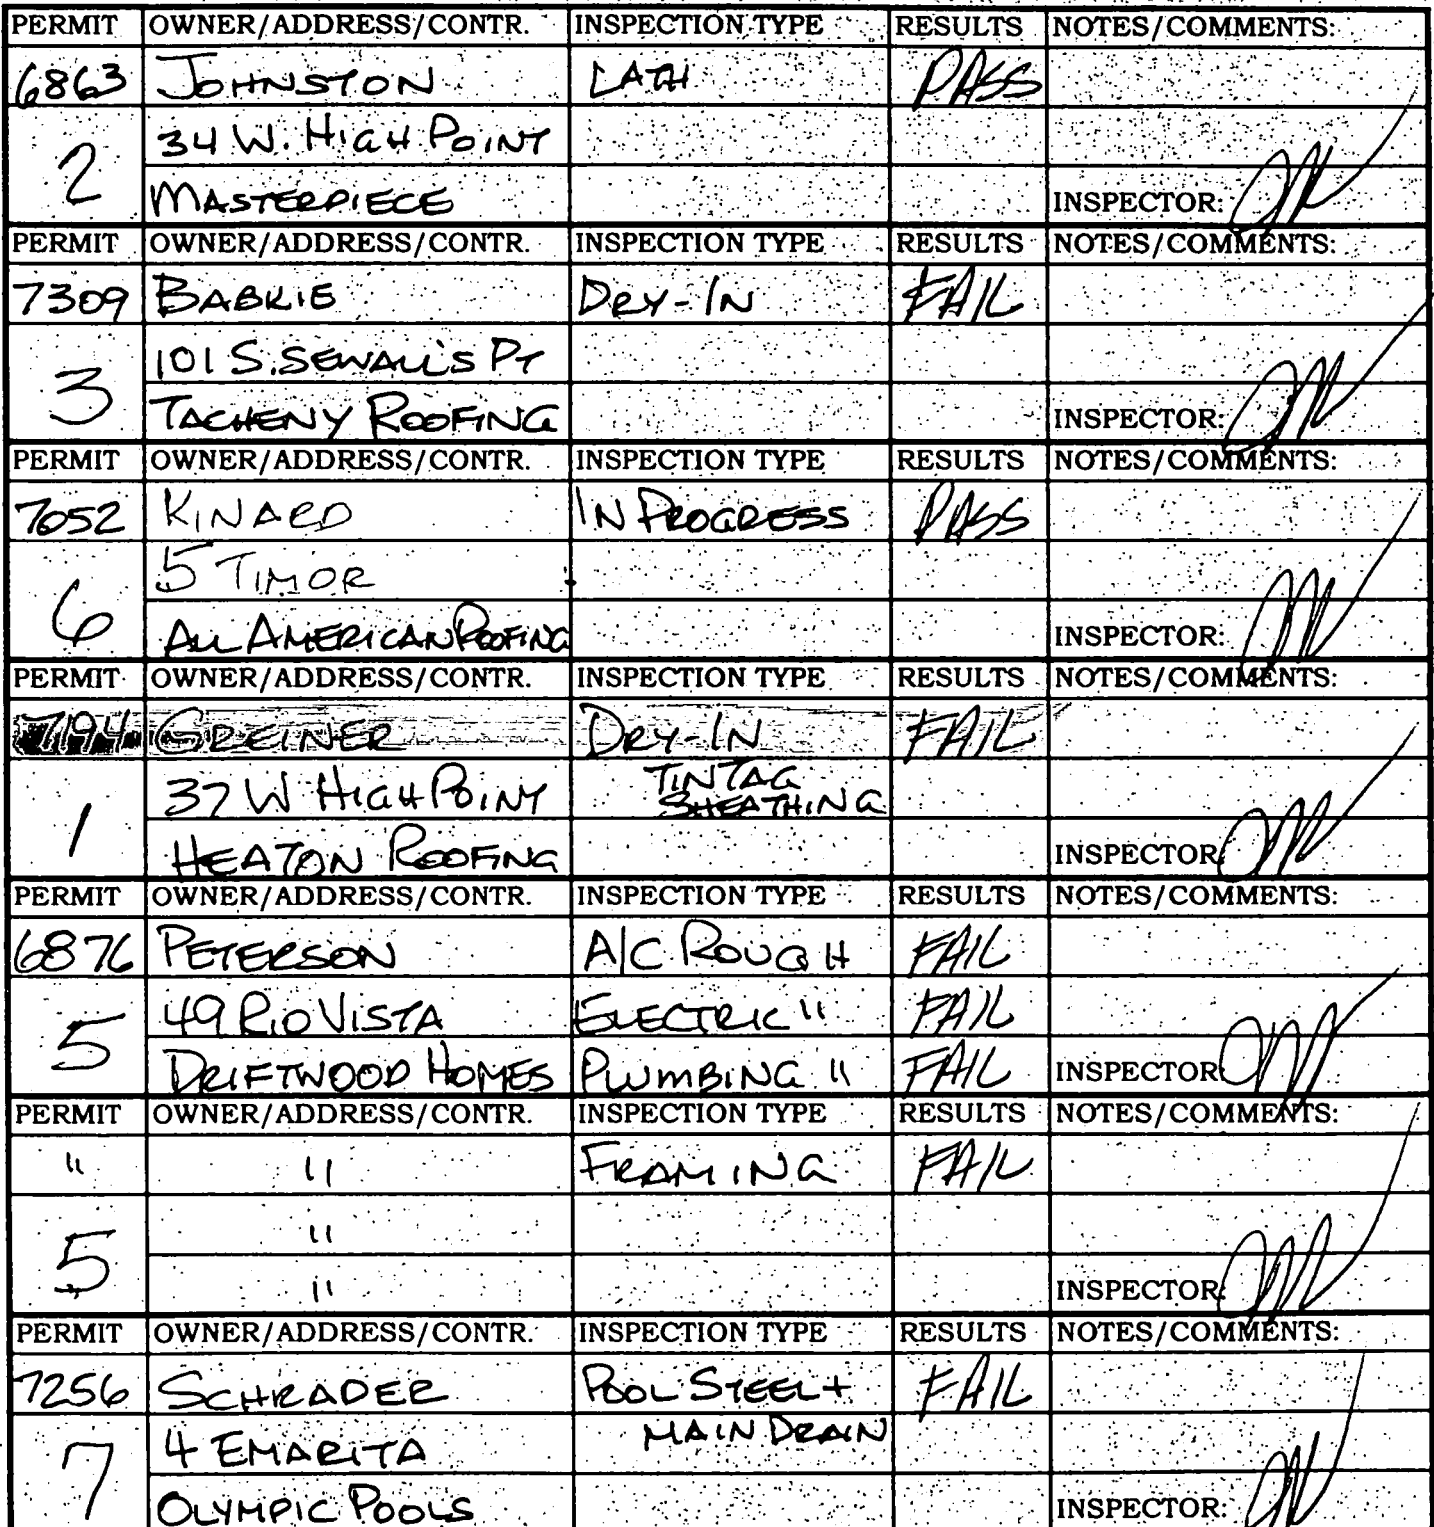 PERMIT OWNER/ADDRESS/CONTR. INSPECTION TYPE RESULTS NOTES/COMMENTS:
6863 JOHNSTON LATH PASS
2 34 W. HIGH POINT
MASTERPIECE INSPECTOR:
PERMIT OWNER/ADDRESS/CONTR. INSPECTION TYPE RESULTS NOTES/COMMENTS:
7309 BABKIE DRY-IN FAIL
3 101 S. SEWALL'S PT
TACHENY ROOFING INSPECTOR:
PERMIT OWNER/ADDRESS/CONTR. INSPECTION TYPE RESULTS NOTES/COMMENTS:
7052 KINARD IN PROGRESS PASS
6 5 TIMOR
ALL AMERICAN ROOFING INSPECTOR:
PERMIT OWNER/ADDRESS/CONTR. INSPECTION TYPE RESULTS NOTES/COMMENTS:
7194 GREINER DRY-IN FAIL
1 37 W HIGH POINT TIN TAG
SHEATHING
HEATON ROOFING INSPECTOR
PERMIT OWNER/ADDRESS/CONTR. INSPECTION TYPE RESULTS NOTES/COMMENTS:
6876 PETERSON A/C ROUGH FAIL
5 49 RIO VISTA ELECTRIC " FAIL
DRIFTWOOD HOMES PLUMBING " FAIL INSPECTOR
PERMIT OWNER/ADDRESS/CONTR. INSPECTION TYPE RESULTS NOTES/COMMENTS:
" " FRAMING FAIL
5 "
" INSPECTOR:
PERMIT OWNER/ADDRESS/CONTR. INSPECTION TYPE RESULTS NOTES/COMMENTS:
7256 SCHRADER POOL STEEL + FAIL
7 4 EMARITA MAIN DRAIN
OLYMPIC POOLS INSPECTOR: